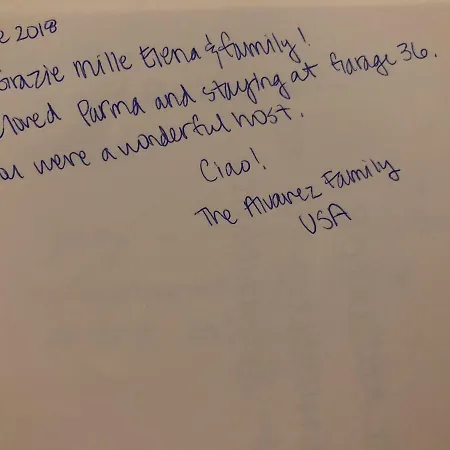 2018
Grazie mille Elena & family!
loved Parma and staying at Garage 36.
were a wonderful host.
Ciao!
The Alvarez Family
USA